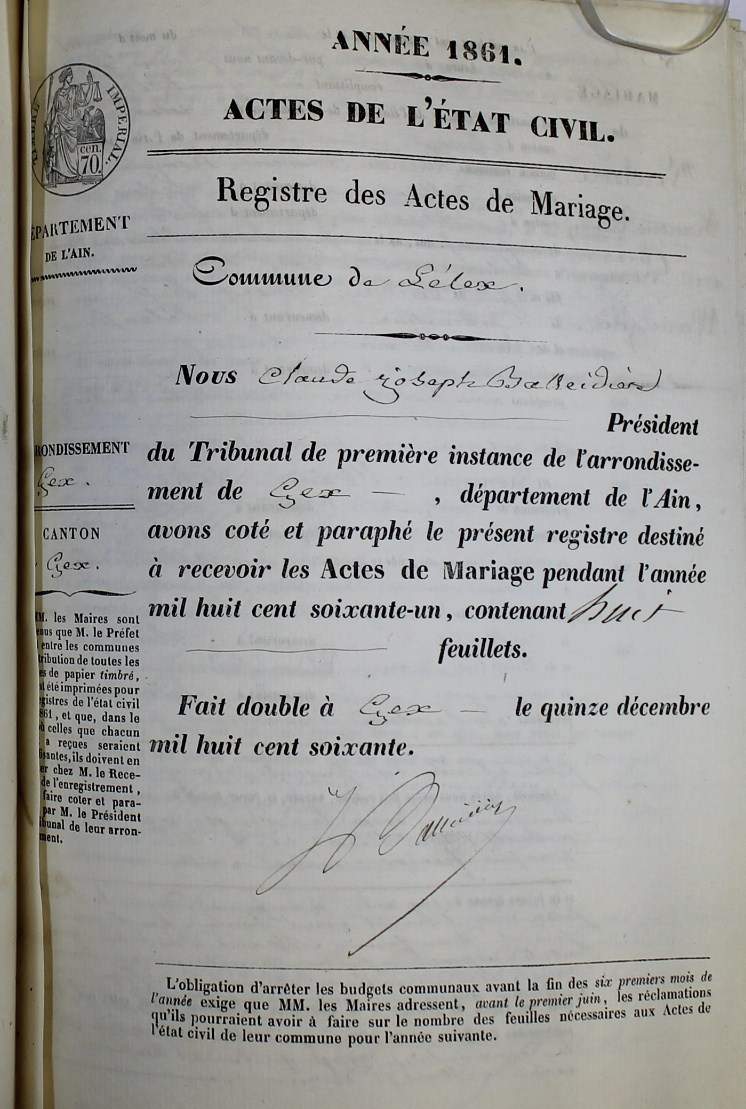 ANNÉE 1861.
ACTES DE L'ÉTAT CIVIL.
Registre des Actes de Mariage.
TIMBRE IMPERIAL.
70 cen.
DÉPARTEMENT
DE L'AIN.
Commune de Lélex.
Nous Claude Joseph
Président
du Tribunal de première instance de l'arrondisse-
ment de Gex — , département de l'Ain,
avons coté et paraphé le présent registre destiné
à recevoir les Actes de Mariage pendant l'année
mil huit cent soixante-un, contenant huit
feuillets.
Fait double à Gex — le quinze décembre
mil huit cent soixante.
RONDISSEMENT
Gex.
CANTON
Gex.
MM. les Maires sont
nus que M. le Préfet
entre les communes
tribution de toutes les
es de papier timbré,
t été imprimées pour
gistres de l'état civil
861, et que, dans le
ù celles que chacun
a reçues seraient
isantes, ils doivent en
er chez M. le Rece-
de l'enregistrement,
faire coter et para-
par M. le Président
ibunal de leur arron-
ment.
L'obligation d'arrêter les budgets communaux avant la fin des six premiers mois de
l'année exige que MM. les Maires adressent, avant le premier juin, les réclamations
qu'ils pourraient avoir à faire sur le nombre des feuilles nécessaires aux Actes de
l'état civil de leur commune pour l'année suivante.